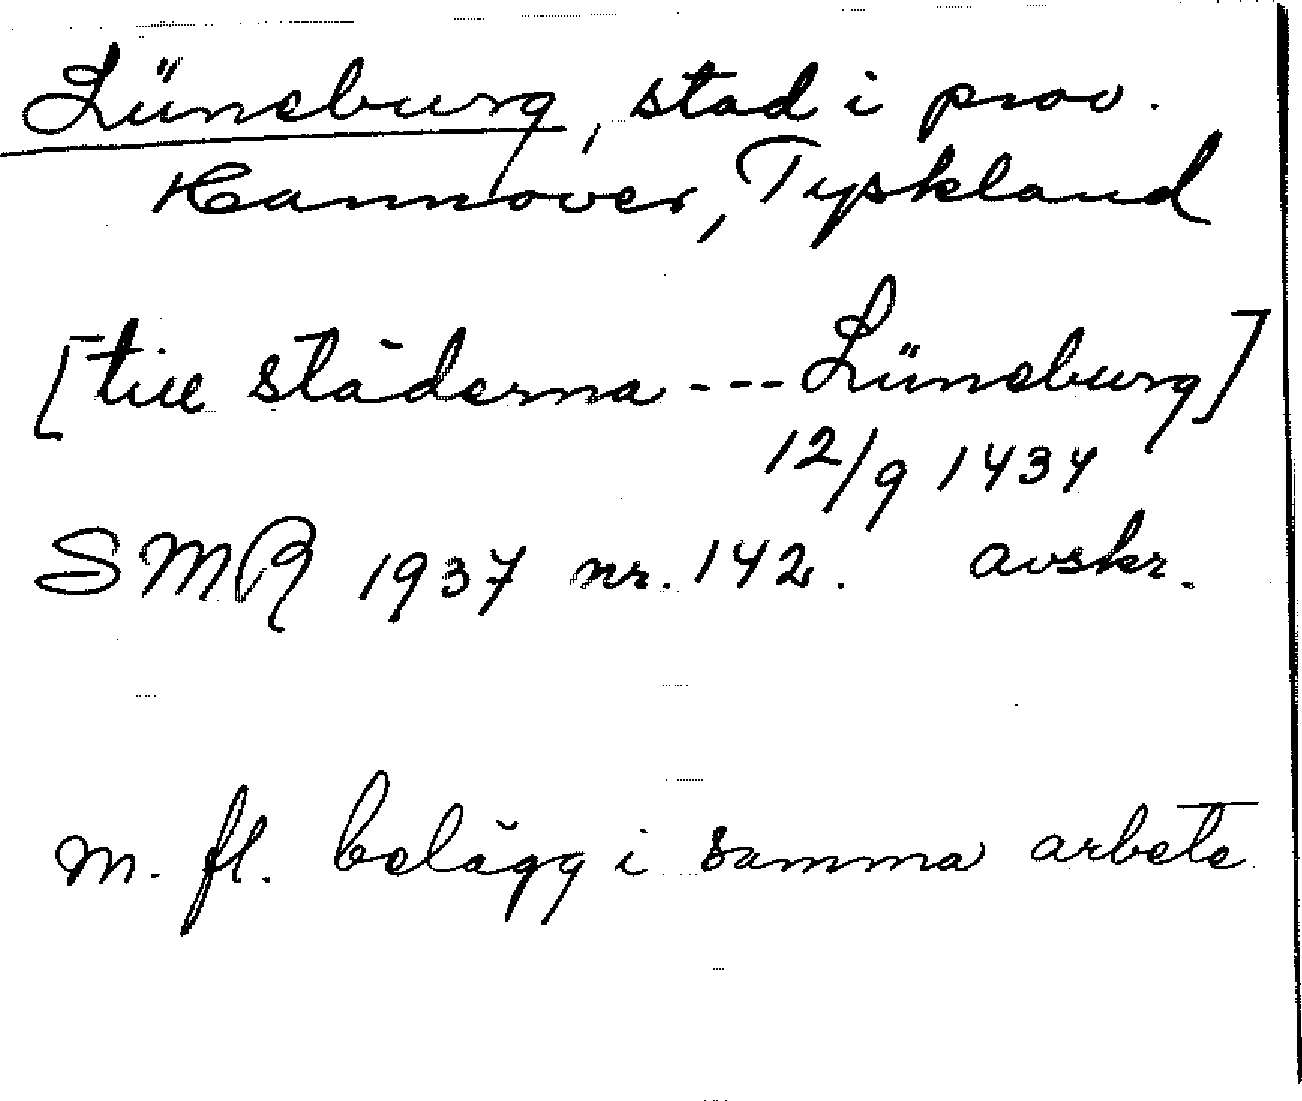 Lüneburg, stad i prov.
Hannover, Tyskland
[till städerna --- Lüneburg]
12/9 1434
SMR 1937 nr. 142. avskr.
m. fl. belägg i samma arbete